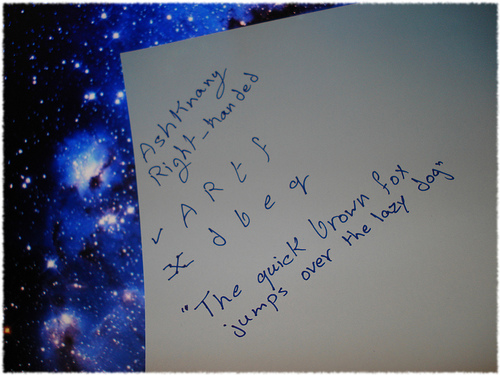 Ashknany
Right-handed
✓ A R t f
X d b e q
"The quick brown fox
jumps over the lazy dog"